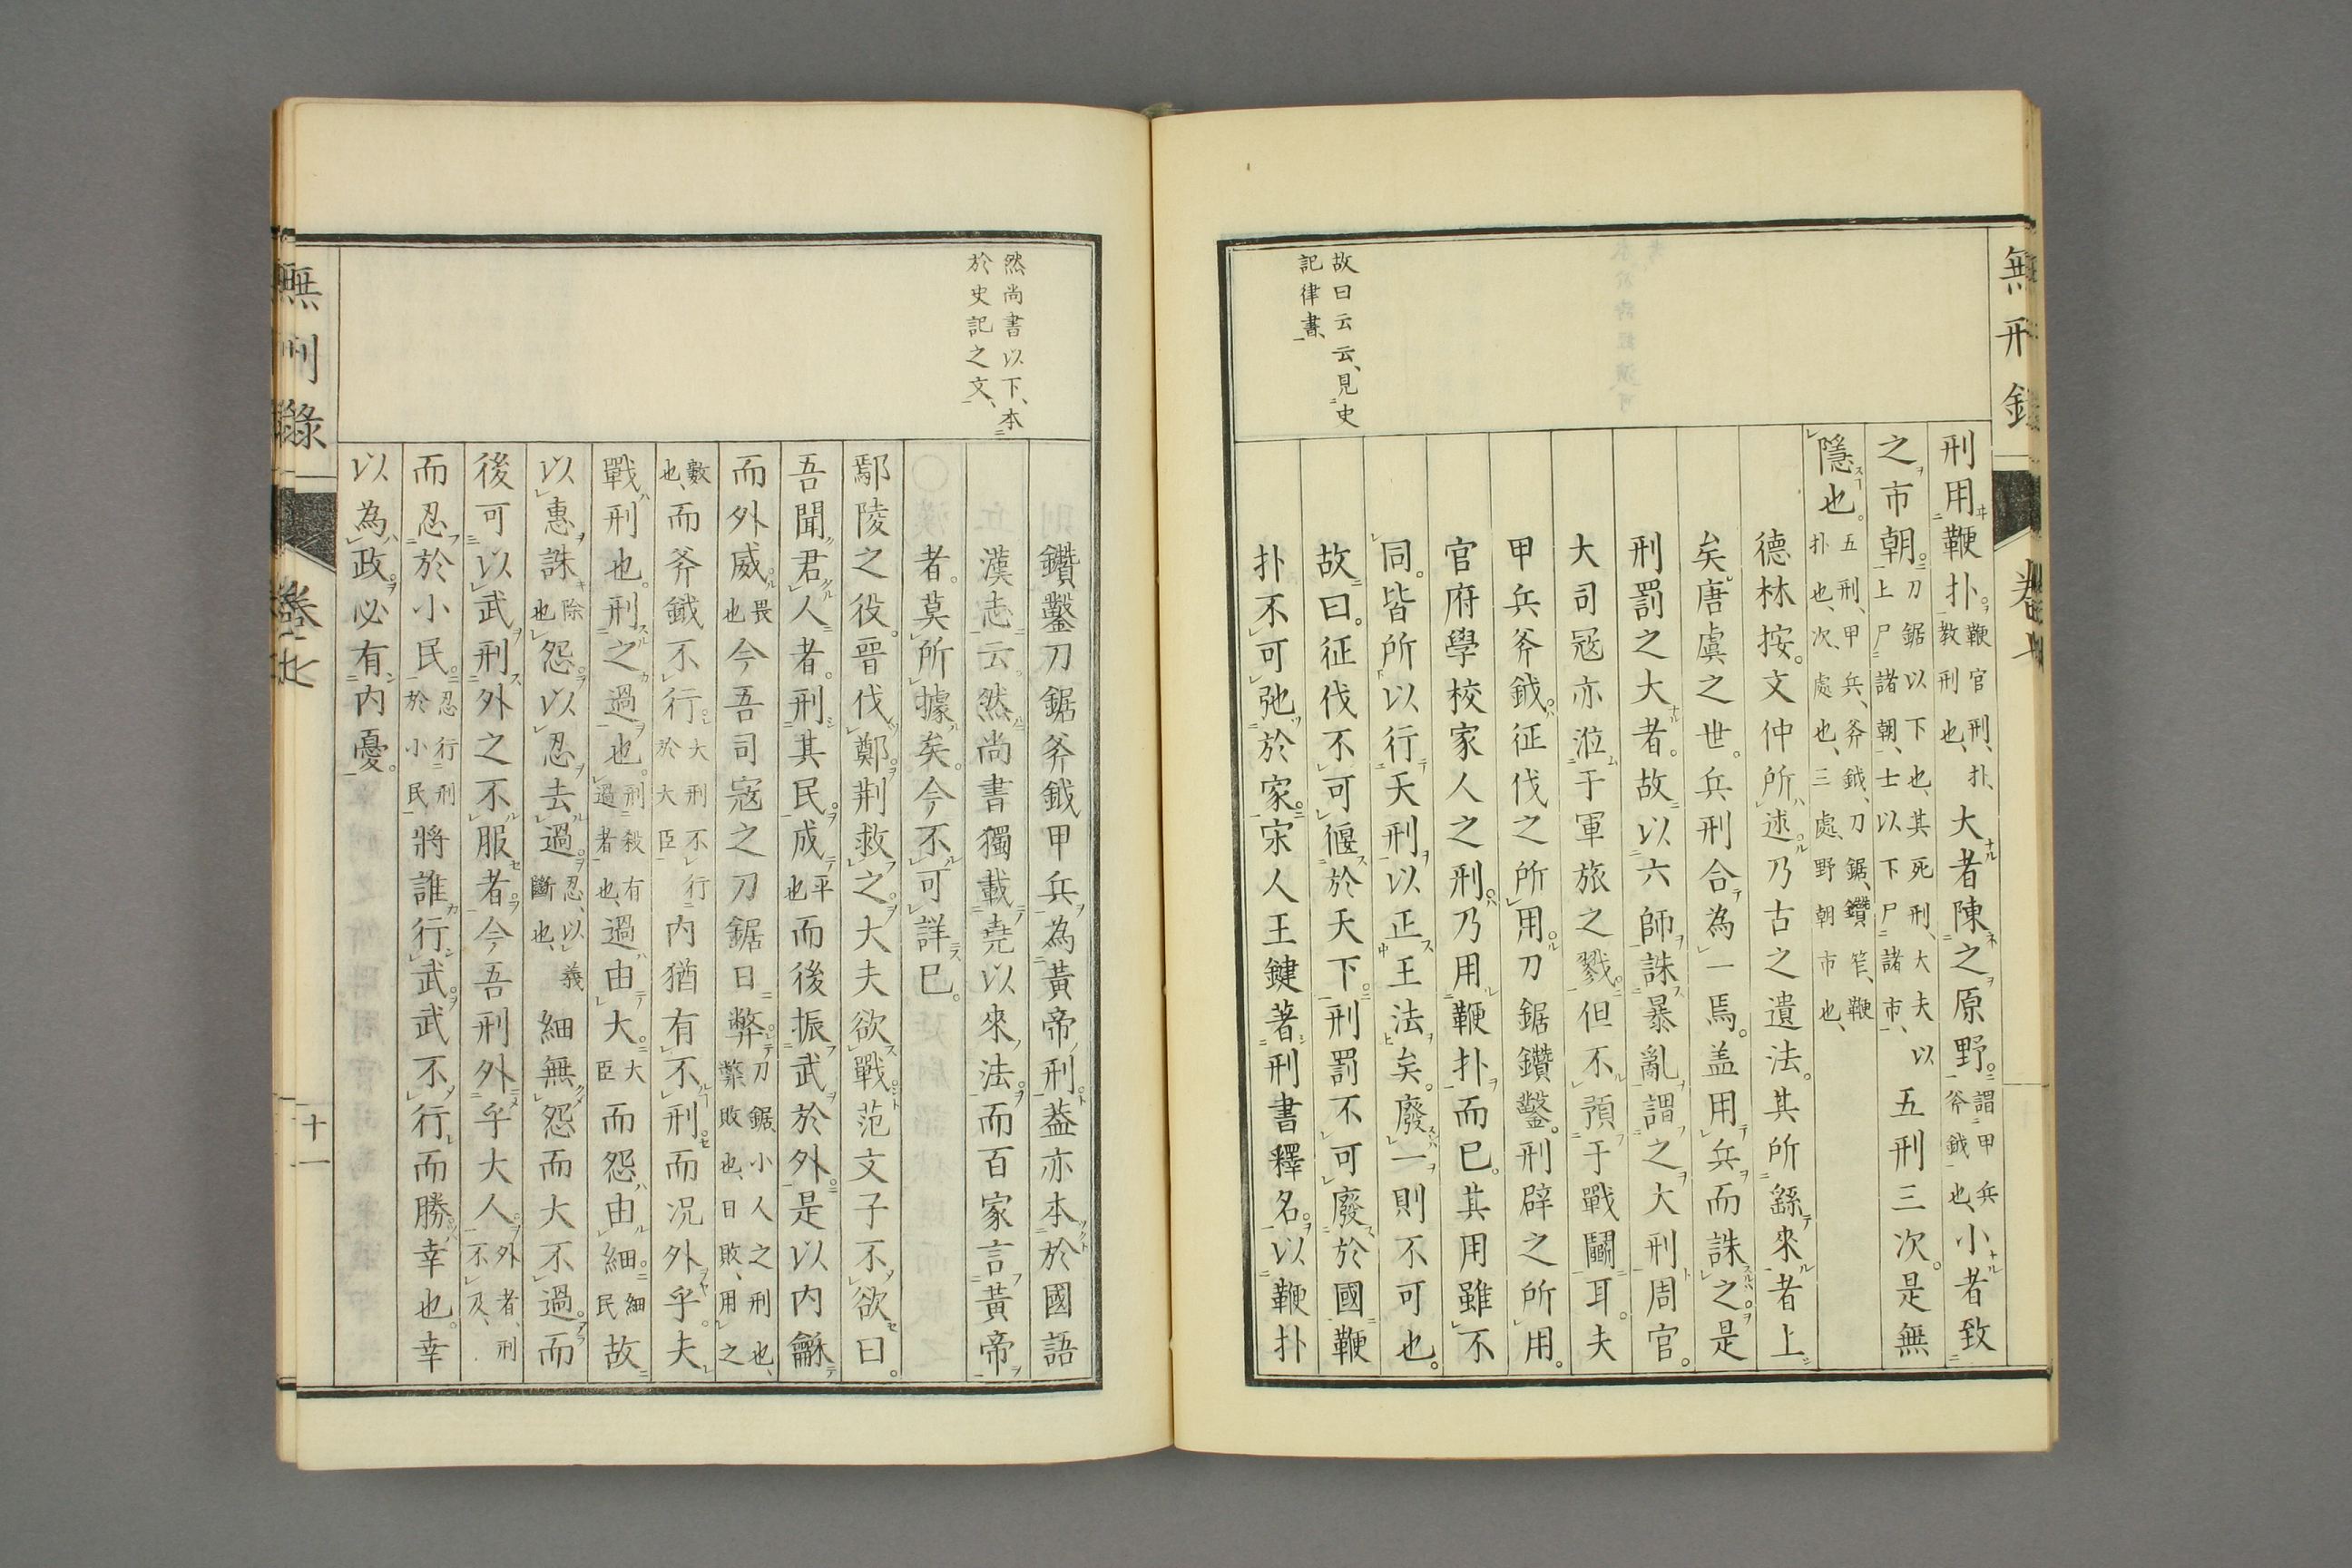 無刑錄
卷
故曰云云、見史
記律書、
刑用鞭扑。鞭官刑、扑、教刑也、大者陳之原野。謂甲兵斧鉞也、小者致
之市朝。刀鋸以下也、其死刑、大夫以上尸諸朝、士以下尸諸市、以五刑三次。是無
隱也。五刑、甲兵、斧鉞、刀鋸、鑽笮、鞭扑也、次、處也、三處、野朝市也、
德林按。文仲所述乃古之遺法。其所繇來者上
矣。唐虞之世。兵刑合為一焉。盖用兵而誅之。是
刑罰之大者。故以六師誅暴亂謂之大刑周官。
大司冦亦涖于軍旅之戮。但不預于戰鬭耳。夫
甲兵斧鉞。征伐之所用。刀鋸鑽鑿。刑辟之所用。
官府學校家人之刑。乃用鞭扑而已。其用雖不
同。皆所以行天刑以正王法矣。廢一則不可也。
故曰。征伐不可偃於天下。刑罰不可廢於國鞭
扑不可弛於家。宋人王鍵著刑書釋名。以鞭扑
然尚書以下、本
於史記之文、
鑽鑿刀鋸斧鉞甲兵為黃帝刑。葢亦本於國語
漢志云。然尚書獨載堯以來法。而百家言黃帝
者。莫所據矣。今不可詳已。
鄢陵之役。晉伐鄭。荆救之。大夫欲戰。范文子不欲曰。
吾聞君人者。刑其民。成平也而後振武於外。是以內龢
而外威。畏也今吾司寇之刀鋸日弊。刀鋸、小人之刑也、弊敗也、日敗、用之
數也、而斧鉞不行。大刑不行於大臣內猶有不刑。而況外乎。夫
戰刑也。刑之過也。刑殺有過者也、過由大。大臣而怨由細。細民故
以惠誅除也怨。以忍去過。忍、以義斷也、細無怨而大不過。而
後可以武刑外之不服者。今吾刑外乎大人。外者、刑不及、
而忍於小民。忍行刑於小民將誰行武。武不行而勝。幸也。幸
以為政。必有內憂。
無刑錄
卷七
十一